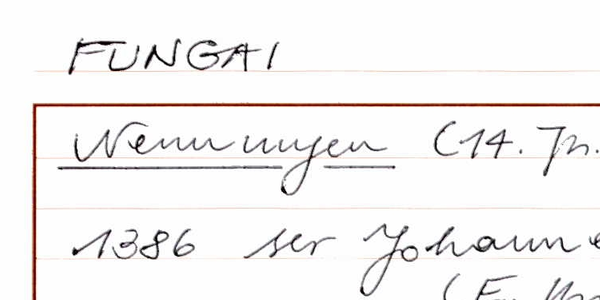 FUNGAI
Nennungen (14. Jh.
1386 ser Johann